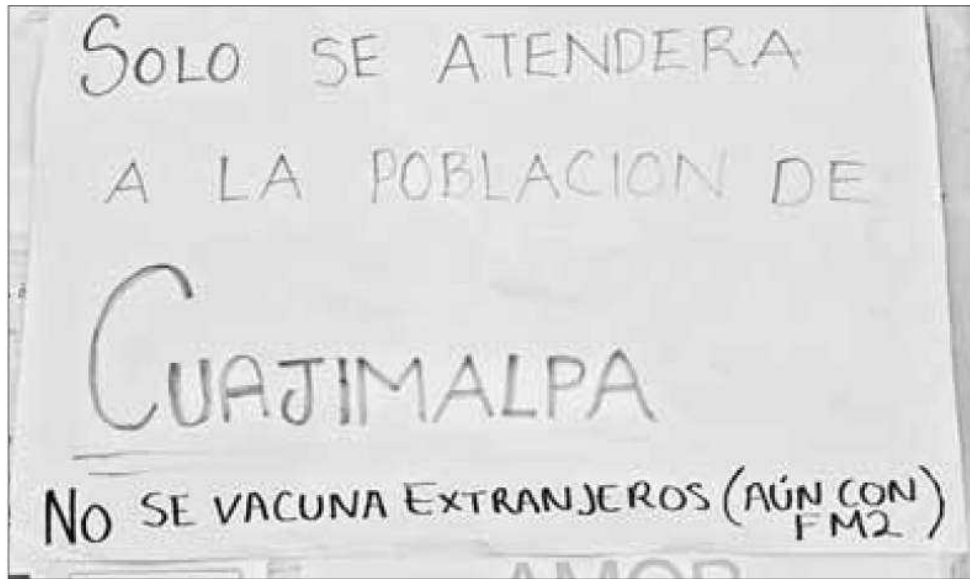 SOLO SE ATENDERA
A LA POBLACION DE
CUAJIMALPA
NO SE VACUNA EXTRANJEROS (AÚN CON
FM2)
AMOR